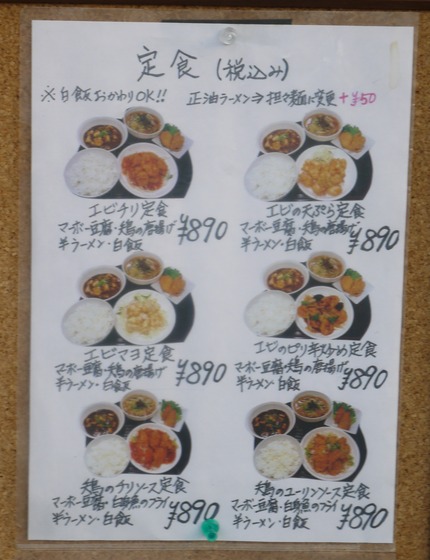 定食(税込み)
※白飯おかわりOK!! 正油ラーメン⇒担々麺に変更+¥50
エビチリ定食
マーボー豆腐・鶏の唐揚げ
半ラーメン・白飯
¥890
エビの天ぷら定食
マーボー豆腐・鶏の唐揚げ
半ラーメン・白飯
¥890
エビマヨ定食
マーボー豆腐・鶏の唐揚げ
半ラーメン・白飯
¥890
エビのピリ辛炒め定食
マーボー豆腐・鶏の唐揚げ
半ラーメン・白飯
¥890
鶏のチリソース定食
マーボー豆腐・白身魚のフライ
半ラーメン・白飯
¥890
鶏のユーリンソース定食
マーボー豆腐・白身魚のフライ
半ラーメン・白飯
¥890